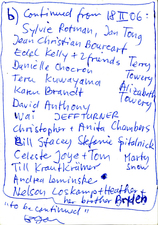 b) Continued from 18 II 06:
Sylvie Rotman, Jan Tong
Jean Christian Bourcart
Edel Kelly + 2 friends Terry Towery
Danielle
Teru Kuwayama
Karen Brandt Elizabeth Towery
David Anthony
Wai JEFF TURNER
Christopher + Anita Chambers
Bill Stacey Stefanie
Celeste Joye + Tom Marty Snow
Till Krautkrämer
Andrea
Nelson Loskamp + Heather +
her brother Brydon
"to be continued"